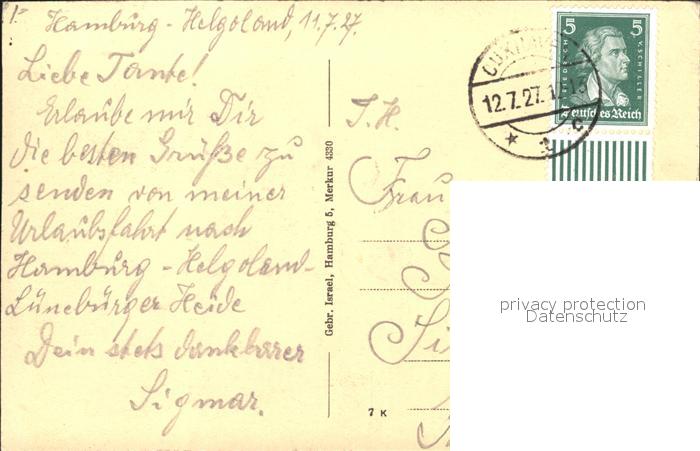 Hamburg - Helgoland, 11.7.27.
Liebe Tante!
Erlaube mir Dir
die besten Grüße zu
senden von meiner
Urlaubsfahrt nach
Hamburg - Helgoland-
Lüneburger Heide
Dein stets dankbarer
Sigmar.
Gebr. Israel, Hamburg 5, Merkur 4330
7 K
I.H.
Frau
5 5
FRIEDRICH V. SCHILLER
Deutsches Reich
CUXHAVEN
12.7.27.
* c
privacy protection
Datenschutz